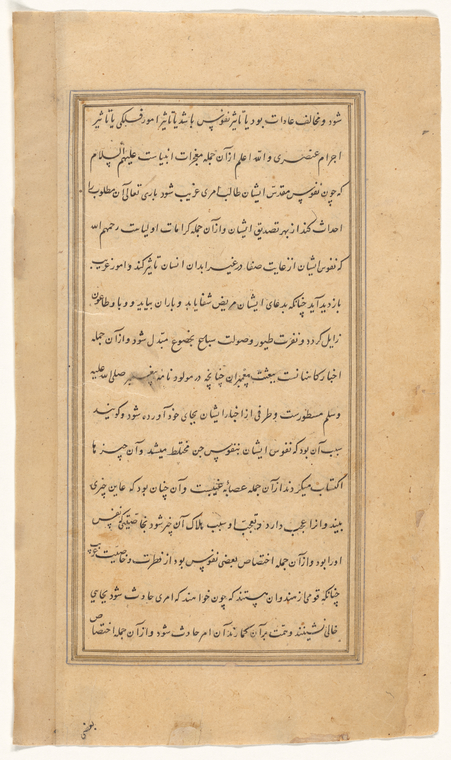 شود و مخالف عادات بود یا تاثیر نفوس باشد یا تاثیر امور فلکی یا تاثیر
اجرام عنصری و الله اعلم از آن جمله معجزات انبیاست علیهم السلام
که چون نفوس مقدس ایشان طالب امری غریب شود باری تعالی آن مطلوب را
احداث کند از بهر تصدیق ایشان و از آن جمله کرامات اولیاست رحمهم الله
که نفوس ایشان از غایت صفا در غیر ابدان انسان تاثیر کند و امور غریب
بازدید آید چنانکه بدعای ایشان مریض شفا یابد و باران بیاید و وبا و طاعون
زایل گردد و نفرت طیور و صولت سباع بخضوع متبدل شود و از آن جمله
اخبار کاهنانست ببعثت پیغمبران چنانچه در مولود نامه پیغمبر صلی الله علیه
وسلم مسطورست و طرفی از اخبار ایشان بجای خود آورده شود و گویند
سبب آن بود که نفوس ایشان بنفوس جن مختلط میشد و آن چیز ها
اکتساب میکردند از آن جمله عصابه عینیست و آن چنان بود که عاین چیزی
بیند و از ا عجب دارد و تعجب او سبب هلاک آن چیز شود بخاصیتیکه نفس
او را بود و از آن جمله اختصاص بعضی نفوس بود از فطرت و خاصیت غریب
چنانکه قومی از هندوان هستند که چون خواهند که امری حادث شود بجای
خالی نشینند و همت بر آن گمارند آن امر حادث شود و از آن جمله اختصاص
بعضی